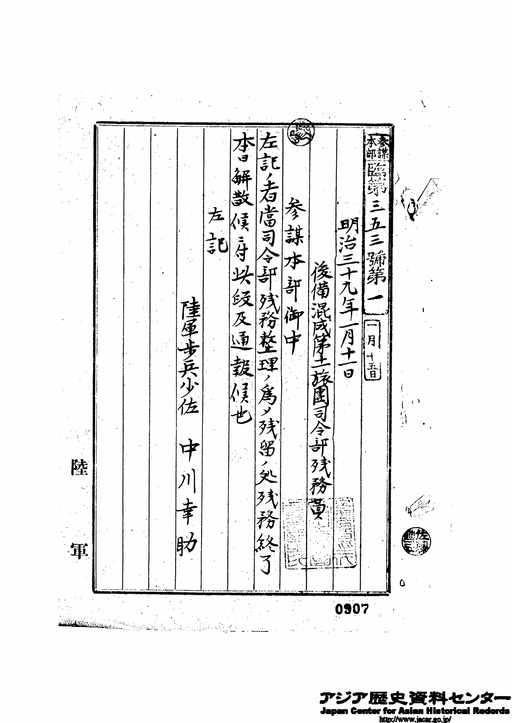 參謀本部 臨第三五三號第一
一月十五日
明治三十九年一月十一日
後備混成第十一旅團司令部残務員
參謀本部御中
左記ノ者當司令部残務整理ノ爲メ残留ノ処残務終了
本日解散候ニ付此段及通報候也
左記
陸軍歩兵少佐 中川幸助
陸軍
0907
アジア歴史資料センター
Japan Center for Asian Historical Records
http://www.jacar.go.jp/